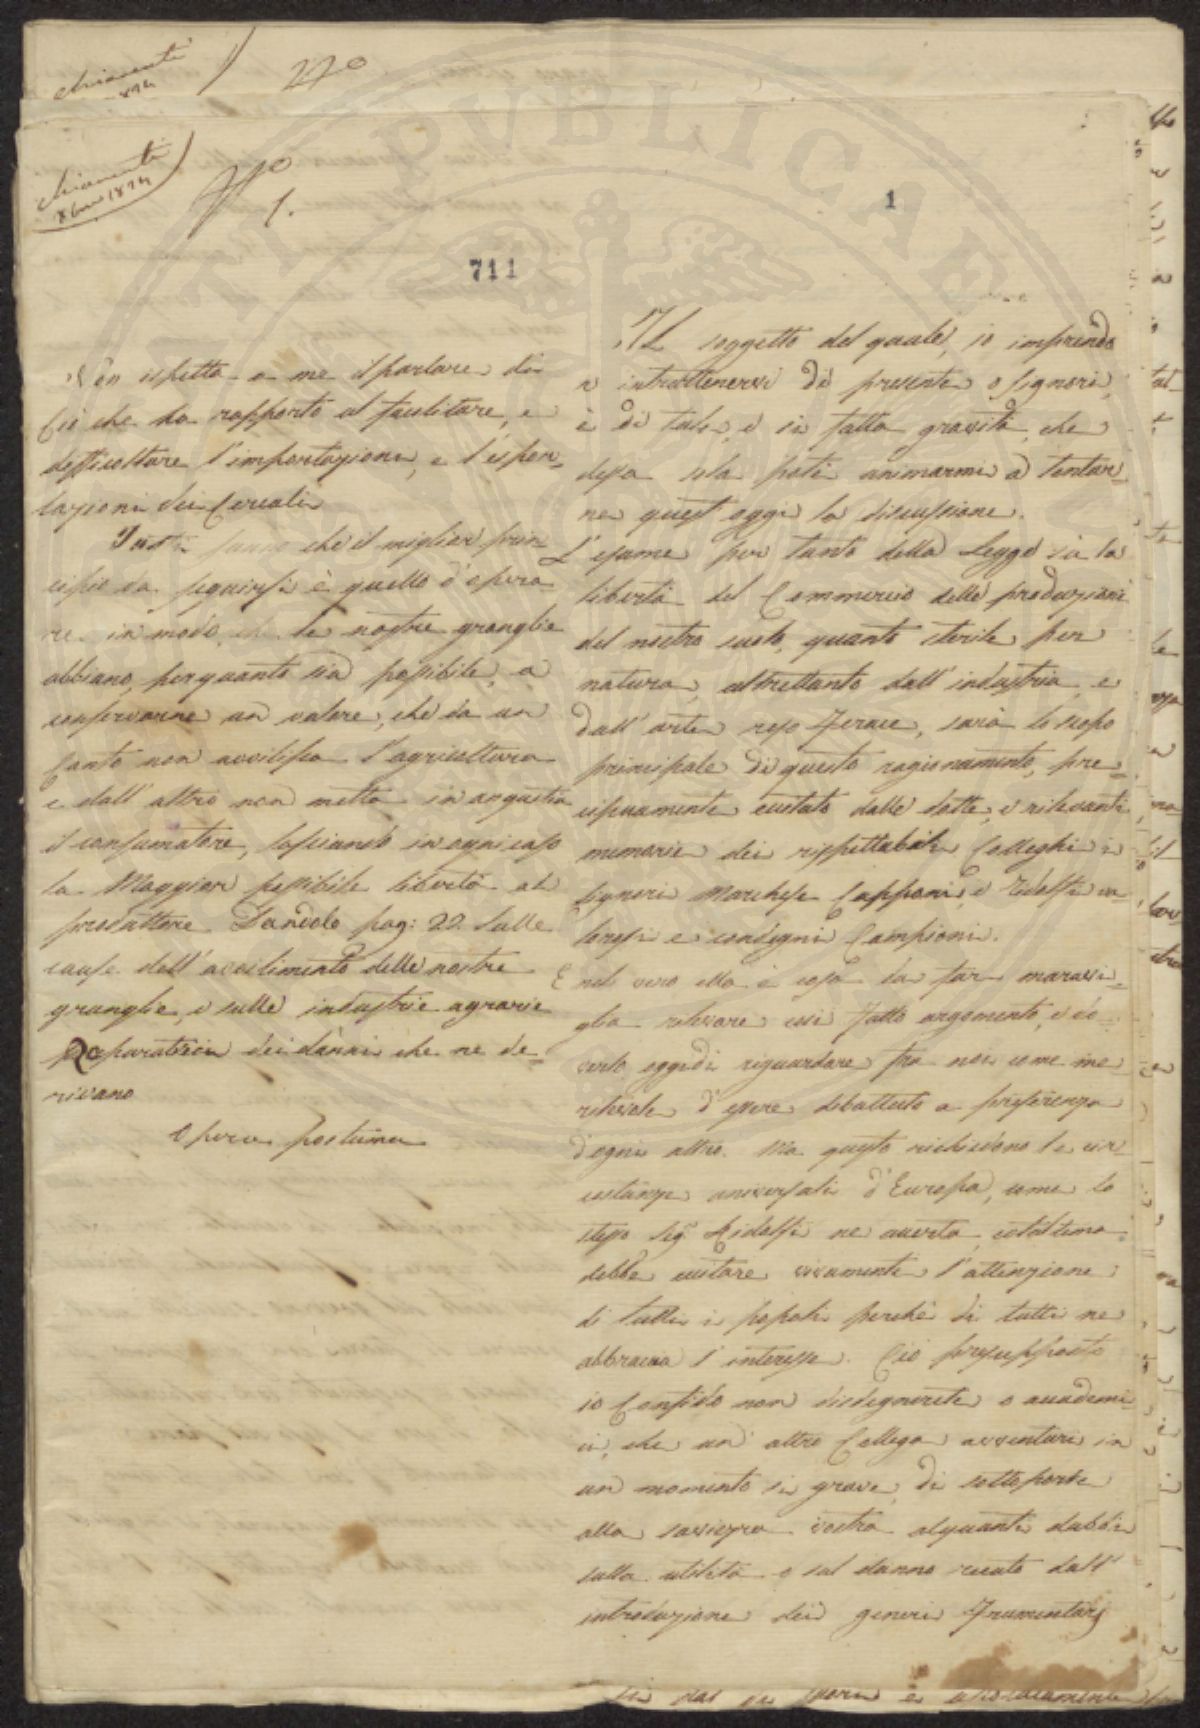 Chiarenti
270
Chiarenti
8bre 1824
N.º
1.
1
711
Non ispetta a me il parlare di
ciò che ha rapporto al facilitare, e
difficoltare l'importazione, e l'espor-
tazione dei Cereali
che il miglior prin
cipio da seguirsi è quello d'opera
re in modo che le nostre granaglie
abbiano, perquanto sia possibile, a
conservarne un valore, che da un
canto non avvilisca l'agricoltura
e dall'altro non metta in angustia
il consumatore, lasciando in ogni caso
la Maggior possibile libertà al
produttore Dandolo pag: 22. Sulle
cause dell'avvilimento delle nostre
granaglie, e sulle industrie agrarie
Reparatrici dei danni che ne de-
rivano
Opera postuma
Il soggetto del quale, io imprendo
a intrattenervi di presente o signori,
è di tale, e sì fatta gravità, che
dessa sola potè animarmi a tentar-
ne quest'oggi la discussione.
L'esame per tanto della Legge sù la
libertà del Commercio delle produzioni
del nostro suolo, quanto sterile per
natura, altrettanto dall'industria, e
dall'arte reso ferace, sarà lo scopo
principale di questo ragionamento, pre-
cipuamente eccitato dalle dotte, e rilevanti
memorie dei rispettabili Colleghi i
signori Marchese Capponi, e Ridolfi va-
lorosi e condegni Campioni.
E nel vero ella è cosa da far maravi-
glia rilevare così fatto argomento, e do-
verlo oggidì riguardare fra noi come me-
ritevole d'essere dibattuto a preferenza
d'ogni altro. Ma questo richiedono le cir
costanze universali d'Europa, come lo
stesso Sigr Ridolfi ne avverte,
debbe eccitare vivamente l'attenzione
di tutti i popoli perchè di tutti ne
abbraccia l'interesse. Ciò presupposto
io Confido non disdegnerete o accademi-
ci, che un altro Collega avventuri in
un momento sì grave, di sottoporre
alla saviezza vostra alquanti dubbi
sulla utilità o sul danno recato dall'
introduzione dei generi frumentarj